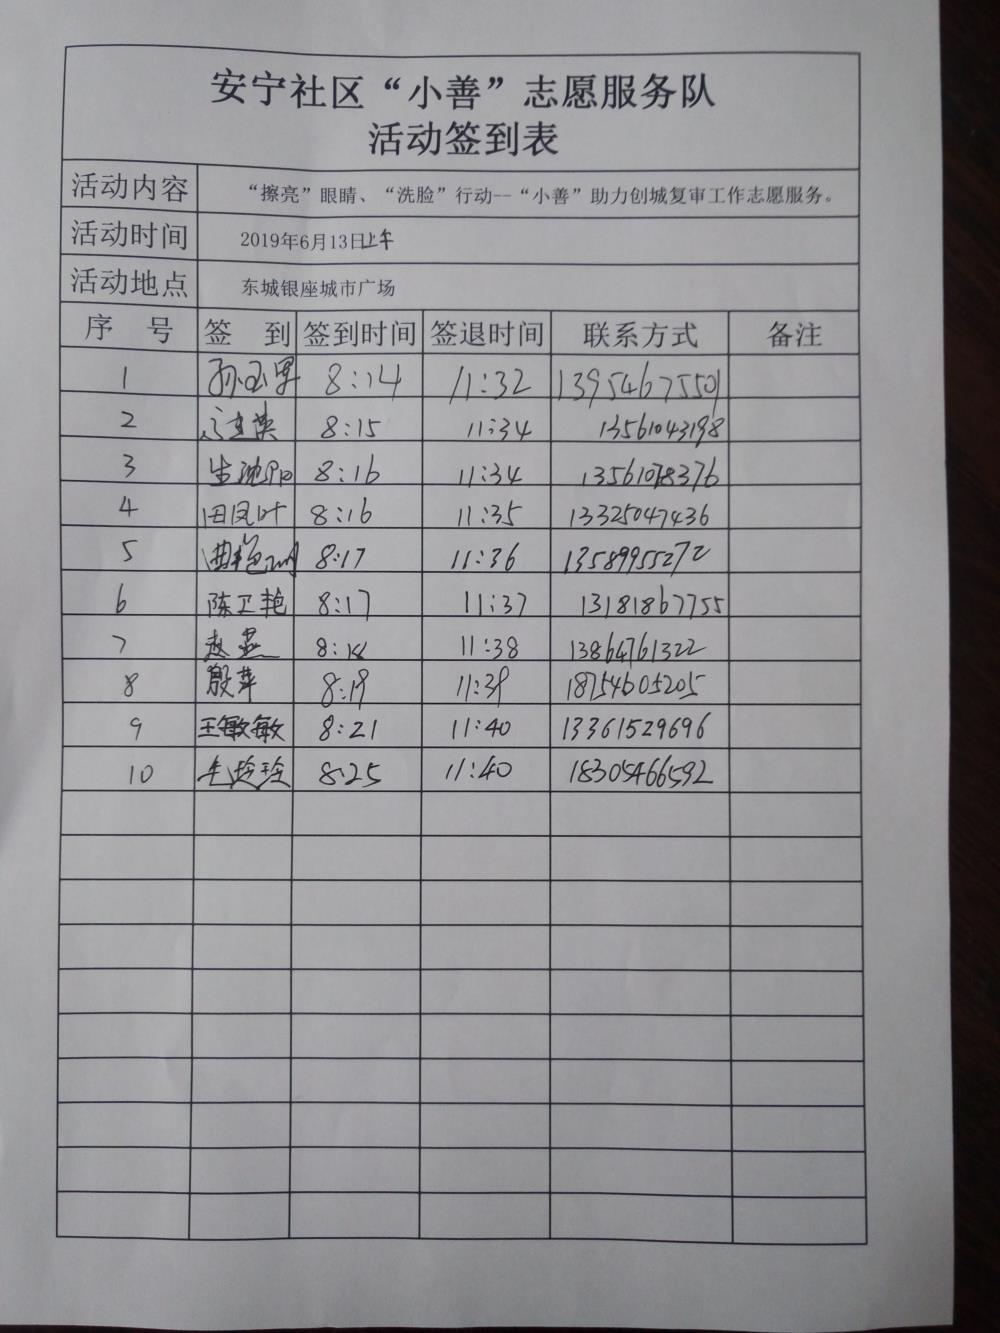 安宁社区“小善”志愿服务队
活动签到表
活动内容 “擦亮”眼睛、“洗脸”行动--“小善”助力创城复审工作志愿服务。
活动时间 2019年6月13日上午
活动地点 东城银座城市广场
序 号 签 到 签到时间 签退时间 联系方式 备注
1 8:14 11:32 13954675501
2 8:15 11:34 13561043198
3 8:16 11:34 13561078376
4 田凤叶 8:16 11:35 13325047436
5 8:17 11:36 13589955272
6 陈卫艳 8:17 11:37 13181867755
7 赵燕 8:18 11:38 13864761322
8 殷萍 8:19 11:39 18754605205
9 王敏敏 8:21 11:40 13361529696
10 8:25 11:40 18305466592